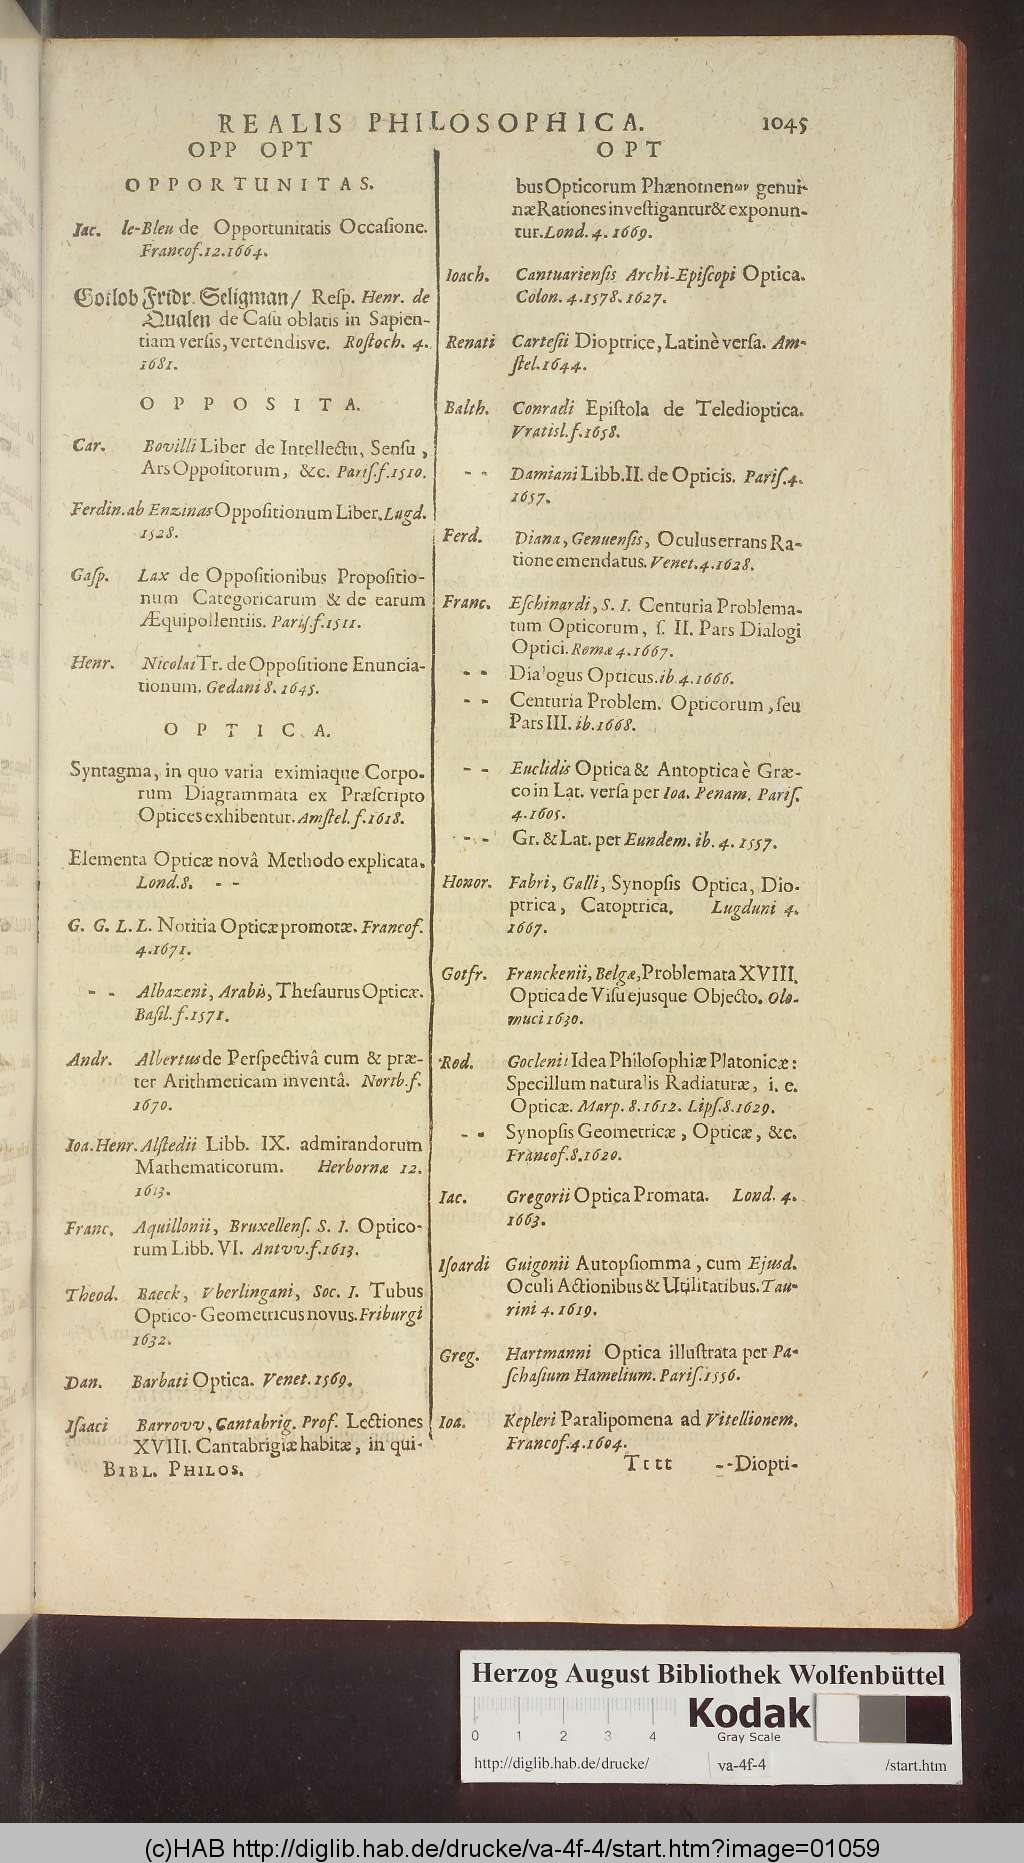 REALIS PHILOSOPHICA. 1045
OPP OPT
OPPORTUNITAS.
Iac. le-Bleu de Opportunitatis Occasione.
Francof. 12. 1664.
Gotlob Fridr. Seligman/ Resp. Henr. de
Qualen de Casu oblatis in Sapien-
tiam versis, vertendisve. Rostoch. 4.
1681.
OPPOSITA.
Car. Bovilli Liber de Intellectu, Sensu,
Ars Oppositorum, &c. Paris. f. 1510.
Ferdin. ab Enzinas Oppositionum Liber. Lugd.
1528.
Gasp. Lax de Oppositionibus Propositio-
num Categoricarum & de earum
Æquipollentiis. Paris. f. 1511.
Henr. Nicolai Tr. de Oppositione Enuncia-
tionum. Gedani 8. 1645.
OPTICA.
Syntagma, in quo varia eximiaque Corpo-
rum Diagrammata ex Præscripto
Optices exhibentur. Amstel. f. 1618.
Elementa Opticæ novâ Methodo explicata.
Lond. 8. - -
G. G. L. L. Notitia Opticæ promotæ. Francof.
4. 1671.
- - Albazeni, Arabis, Thesaurus Opticæ.
Basil. f. 1571.
Andr. Albertus de Perspectivâ cum & præ-
ter Arithmeticam inventâ. Norib. f.
1670.
Ioa. Henr. Alstedii Libb. IX. admirandorum
Mathematicorum. Herbornæ 12.
1613.
Franc. Aquillonii, Bruxellens. S. I. Optico-
rum Libb. VI. Antvv. f. 1613.
Theod. Baeck, Vberlingani, Soc. I. Tubus
Optico-Geometricus novus. Friburgi
1632.
Dan. Barbati Optica. Venet. 1569.
Isaaci Barrovv, Cantabrig. Prof. Lectiones
XVIII. Cantabrigiæ habitæ, in qui-
BIBL. PHILOS.
OPT
bus Opticorum Phænomenων genui-
næ Rationes investigantur & exponun-
tur. Lond. 4. 1669.
Ioach. Cantuariensis Archi-Episcopi Optica.
Colon. 4. 1578. 1627.
Renati Cartesii Dioptrice, Latinè versa. Am-
stel. 1644.
Balth. Conradi Epistola de Teledioptica.
Vratisl. f. 1658.
- - Damiani Libb. II. de Opticis. Paris. 4.
1657.
Ferd. Diana, Genuensis, Oculus errans Ra-
tione emendatus. Venet. 4. 1628.
Franc. Eschinardi, S. I. Centuria Problema-
tum Opticorum, s. II. Pars Dialogi
Optici. Romæ 4. 1667.
- - Dialogus Opticus. ib. 4. 1666.
- - Centuria Problem. Opticorum, seu
Pars III. ib. 1668.
- - Euclidis Optica & Antoptica è Græ-
co in Lat. versa per Ioa. Penam. Paris.
4. 1605.
- - Gr. & Lat. per Eundem. ib. 4. 1557.
Honor. Fabri, Galli, Synopsis Optica, Dio-
ptrica, Catoptrica. Lugduni 4.
1667.
Gotfr. Franckenii, Belgæ, Problemata XVIII.
Optica de Visu ejusque Objecto. Olo-
muci 1630.
Rod. Goclenii Idea Philosophiæ Platonicæ:
Specillum naturalis Radiaturæ, i. e.
Opticæ. Marp. 8. 1612. Lips. 8. 1629.
- - Synopsis Geometricæ, Opticæ, &c.
Francof. 8. 1620.
Iac. Gregorii Optica Promata. Lond. 4.
1663.
Isoardi Guigonii Autopsiomma, cum Ejusd.
Oculi Actionibus & Utilitatibus. Tau-
rini 4. 1619.
Greg. Hartmanni Optica illustrata per Pa-
schasium Hamelium. Paris. 1556.
Ioa. Kepleri Paralipomena ad Vitellionem.
Francof. 4. 1604.
Tttt - - Diopti-
Herzog August Bibliothek Wolfenbüttel
0 1 2 3 4
Kodak
Gray Scale
http://diglib.hab.de/drucke/ va-4f-4 /start.htm
(c)HAB http://diglib.hab.de/drucke/va-4f-4/start.htm?image=01059